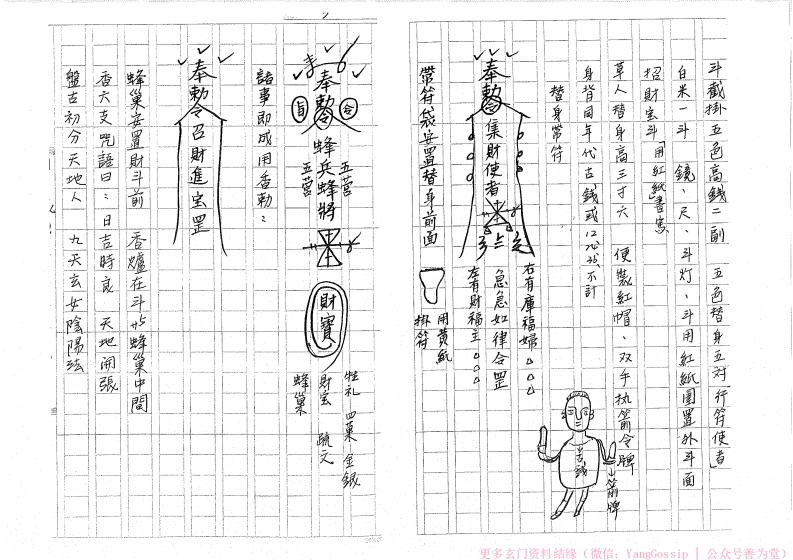 斗截掛五色高錢二副 五色替身五对行符使者」
白米一斗 鏡、尺、斗灯、斗用紅紙圍置外斗面
招財宝斗 用紅紙書寫
草人替身高三寸六 便裝紅帽、双手执箭令牌
古錢
箭牌
替身帶符
右有庫福婦
奉勅令集財使者
急急如律令罡
左有財福主
帶符袋安置替身前面
用黄紙
掛符
牲礼 四菓 金銀
財宝 疏文
蜂巢
五营
奉勅令蜂兵蜂將
財寶
五营
諸事即成用香勅：
奉勅令召財進宝罡
蜂巢安置財斗前 香爐在斗与蜂巢中間
香六支咒語曰：日吉時良 天地開張
盤古初分天地人 九天玄女陰陽法
更多玄门资料结缘（微信：YangGossip | 公众号善为堂）